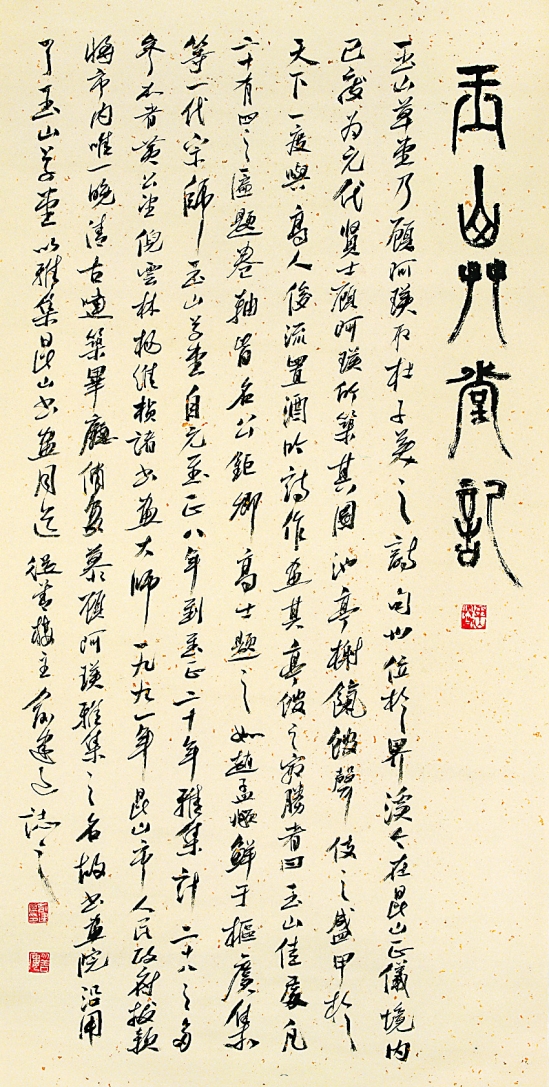 玉山艸堂記
玉山草堂乃顧阿瑛取杜子美之詩句也位於界溪今在昆山正儀境内
已廢为元代贤士顧阿瑛所築其園池亭榭饩館聲伎之盛甲於
天下一度與高人俊流置酒吟詩作画其亭館之最勝者曰玉山佳處凡
二十有四之匾题卷軸皆名公鉅卿高士题之如趙孟頫鲜于樞虞集
等一代宗師玉山草堂自元至正八年到至正二十年雅集計二十八之多
参加者黄公望倪雲林杨维桢諸书画大师一九九一年昆山市人民政府拨款
修市内唯一晚清古建築畢廳俏复慕顧阿瑛雅集之名故书画院沿用
了玉山草堂以雅集昆山书画同道 主俞建良誌之